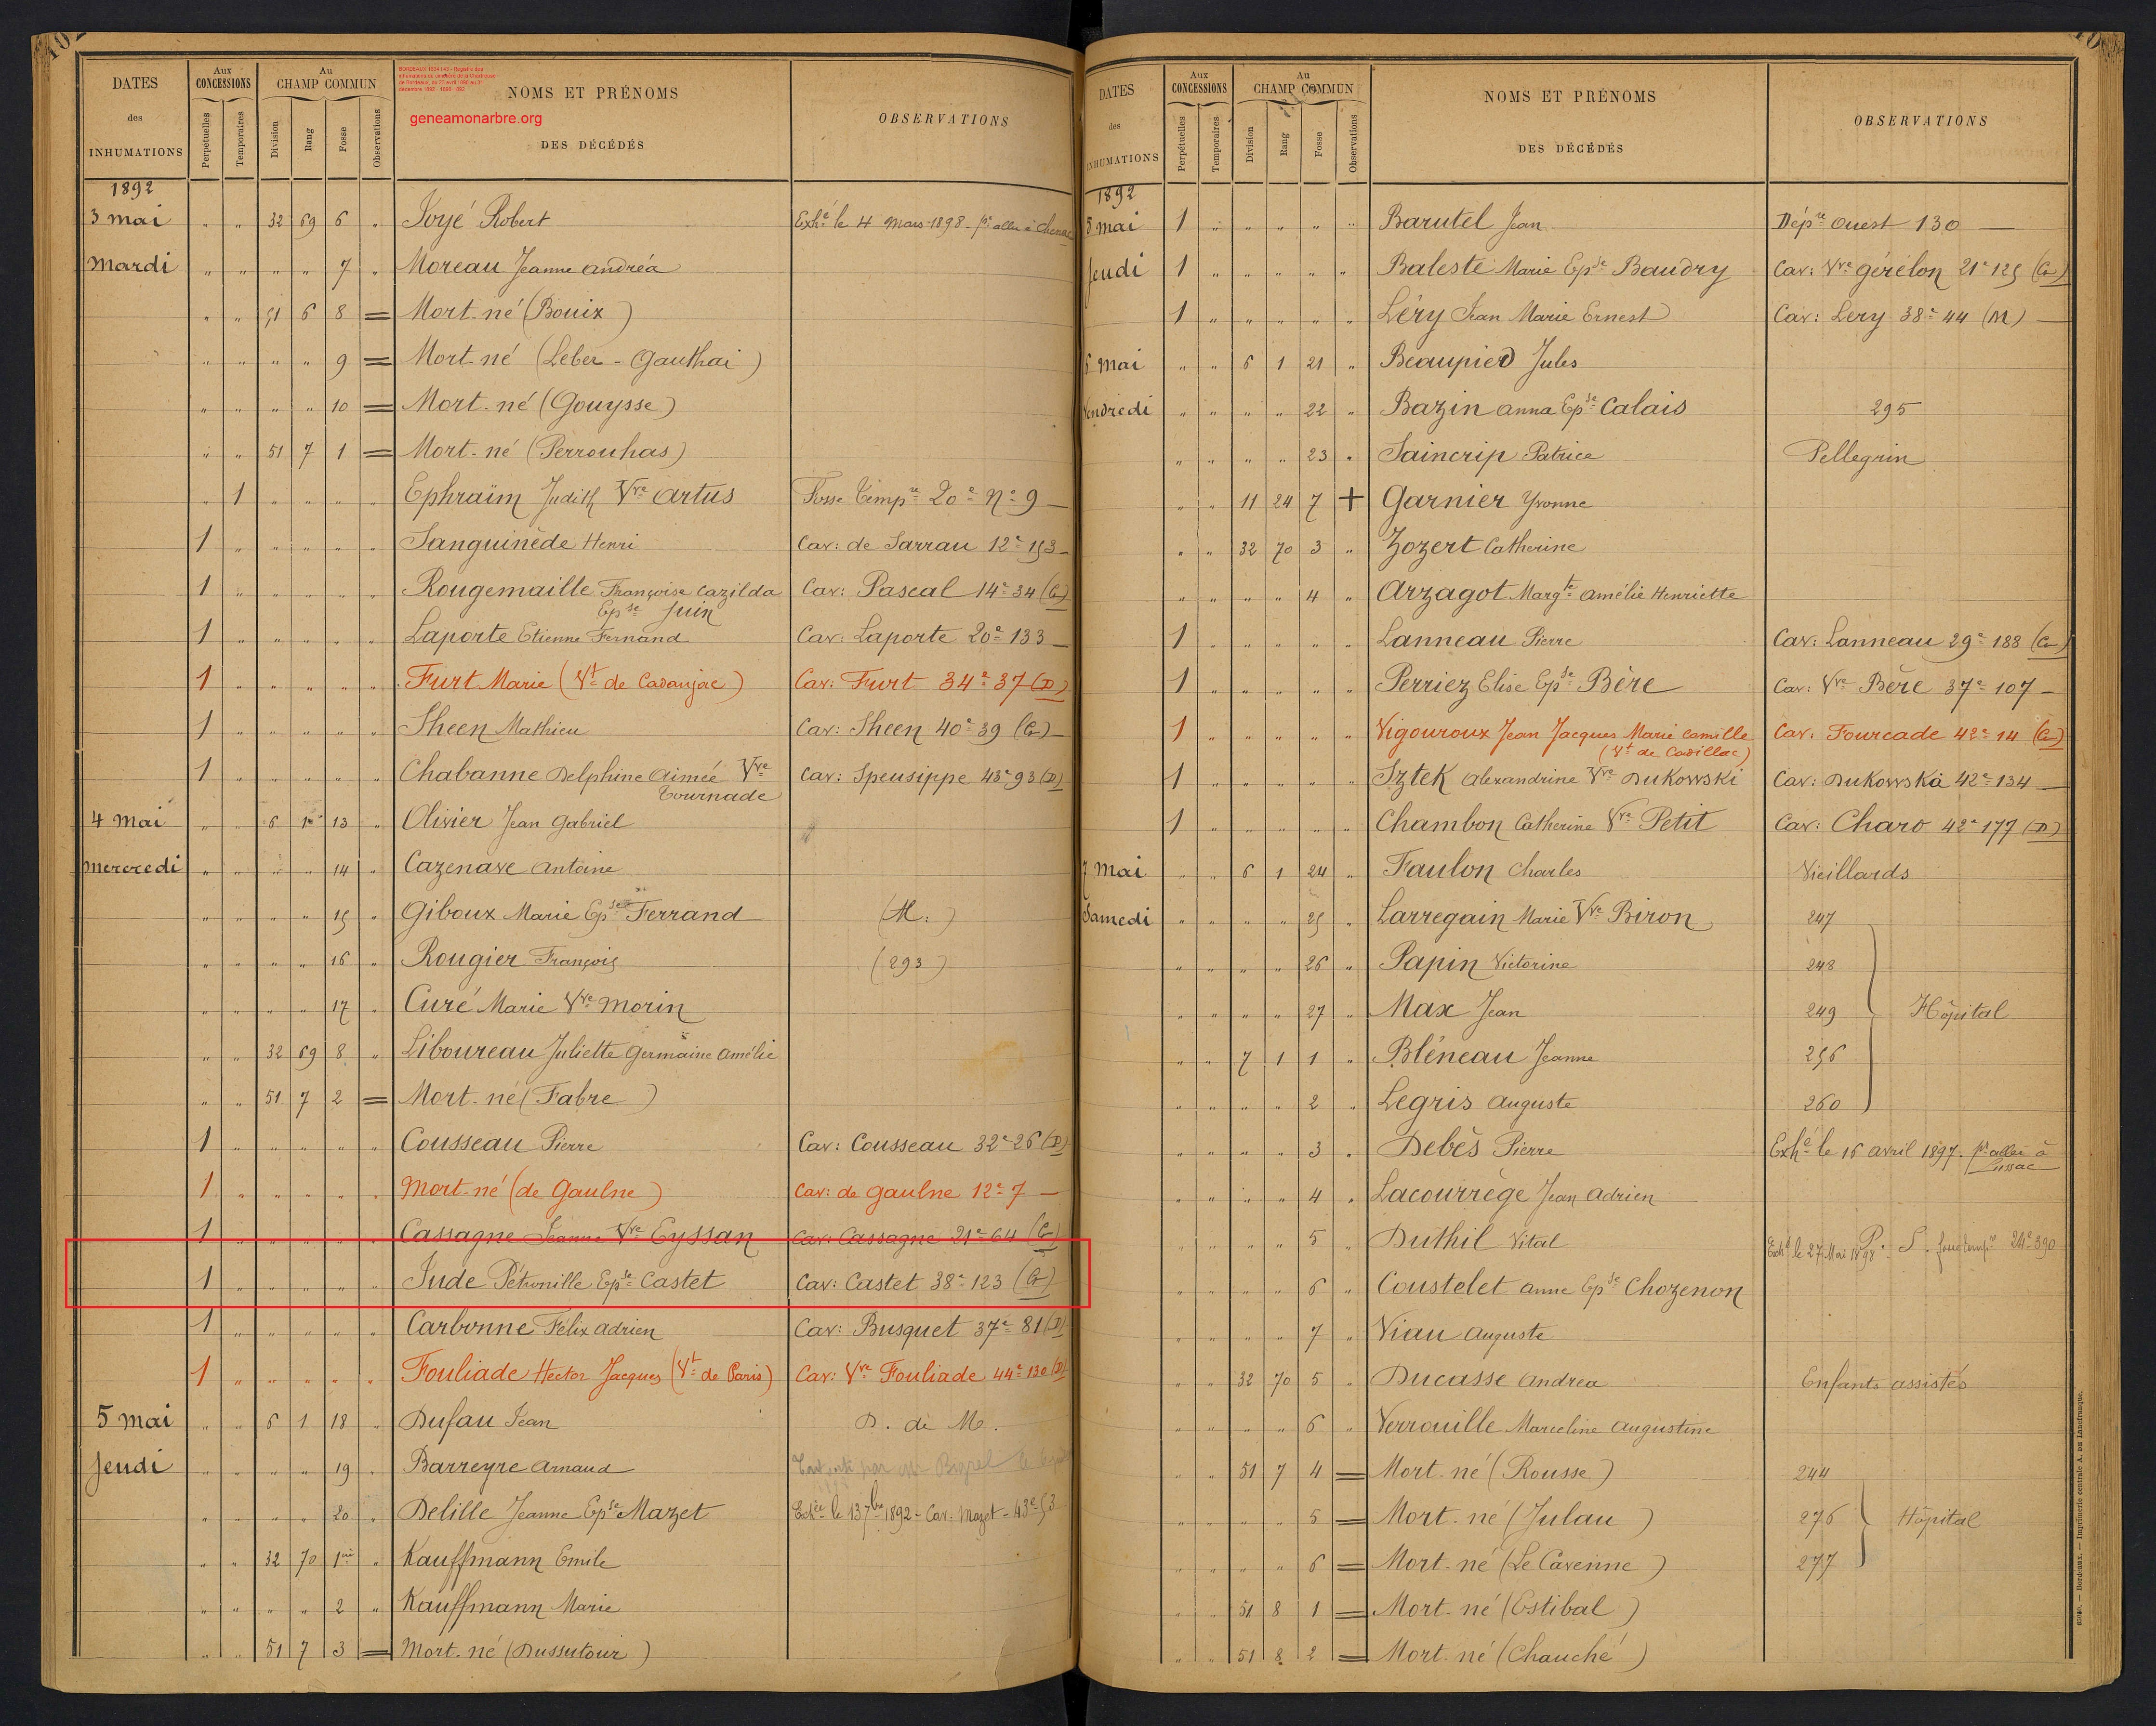 DATES des INHUMATIONS
Aux CONCESSIONS
Perpétuelles
Temporaires
Au CHAMP COMMUN
Division
Rang
Fosse
Observations
BORDEAUX 1624 I 43 - Registre des
inhumations du cimetière de la Chartreuse
de Bordeaux, du 23 avril 1890 au 31
décembre 1892 - 1890-1892
geneamonarbre.org
NOMS ET PRÉNOMS
DES DÉCÉDÉS
OBSERVATIONS
1892
3 mai " " 32 69 6 " Joyé Robert Exhé le 4 Mars 1898 - pr aller à
Mardi " " " " 7 " Moreau Jeanne Andréa
" " 51 6 8 = Mort-né (Bouix)
" " " " 9 = Mort-né (Leber - Gauthai)
" " " " 10 = Mort-né (Gouysse)
" " 51 7 1 = Mort-né (Perrouhas)
" 1 " " " " Ephraïm Judith Vve Artus Fosse Tempre 20e No 9 —
1 " " " " " Sanguinède Henri Cav: de Sarrau 12e 153 —
1 " " " " " Rougemaille Françoise Cazilda Cav: Pascal 14e 34 (G)
Epse Juin
1 " " " " " Laporte Etienne Fernand Cav: Laporte 20e 133 —
1 " " " " " Furt Marie (Vt de Cadaujac) Cav: Furt 34e 37 (D)
1 " " " " " Sheen Mathieu Cav: Sheen 40e 39 (G) —
1 " " " " " Chabanne Delphine Aimée Vve Cav: Speusippe 43e 93 (D)
Tournade
4 Mai " " 6 1er 13 " Olivier Jean Gabriel
Mercredi " " " " 14 " Cazenave Antoine
" " " " 15 " Giboux Marie Epse Ferrand (M:)
" " " " 16 " Rougier François (293)
" " " " 17 " Curé Marie Vve Morin
" " 32 69 8 " Liboureau Juliette Germaine Amélie
" " 51 7 2 = Mort-né (Fabre)
1 " " " " " Cousseau Pierre Cav: Cousseau 32e 26 (D)
1 " " " " " Mort-né (de Gaulne) Cav: de Gaulne 12e 7 —
1 " " " " " Cassagne Jeanne Vve Eyssan Cav: Cassagne 21e 64 (G)
1 " " " " " Jude Pétronille Epse Castet Cav: Castet 38e 123 (G)
1 " " " " " Carbonne Félix Adrien Cav: Busquet 37e 81 (D)
1 " " " " " Fouliade Hector Jacques (Vt de Paris) Cav: Vve Fouliade 44e 130 (D)
5 Mai " " 6 1 18 " Dufau Jean D. de M.
Jeudi " " " " 19 " Barreyre Arnaud
" " " " 20 " Delille Jeanne Epse Mazet Exhée le 13 7bre 1892 - Cav. Mazet - 43e 53
" " 32 70 1er " Kauffmann Emile
" " " " 2 " Kauffmann Marie
" " 51 7 3 = Mort-né (Dussutour)
DATES des INHUMATIONS
Aux CONCESSIONS
Perpétuelles
Temporaires
Au CHAMP COMMUN
Division
Rang
Fosse
Observations
NOMS ET PRÉNOMS
DES DÉCÉDÉS
OBSERVATIONS
1892
5 mai 1 " " " " " Barutel Jean Dépre Ouest 130 —
Jeudi 1 " " " " " Baleste Marie Epse Baudry Cav: Vve Gérélon 21e 125 (G)
1 " " " " " Léry Jean Marie Ernest Cav: Lery 38e 44 (M) —
6 Mai " " 6 1 21 " Beaupied Jules
Vendredi " " " " 22 " Bazin Anna Epse Calais 295
" " " " 23 " Saincrip Patrice Pellegrin
" " 11 24 7 + Garnier Yvonne
" " 32 70 3 " Zozert Catherine
" " " " 4 " Arzagot Margte Amélie Henriette
1 " " " " " Lanneau Pierre Cav: Lanneau 29e 188 (G)
1 " " " " " Perriez Elise Epse Bère Cav: Vve Bère 37e 107 —
1 " " " " " Vigouroux Jean Jacques Marie Camille Cav: Fourcade 42e 14 (G)
(Vt de Cadillac)
1 " " " " " Sztek Alexandrine Vve Dukowski Cav: Dukowska 42e 134 —
1 " " " " " Chambon Catherine Vve Petit Cav: Charo 42e 177 (D)
7 Mai " " 6 1 24 " Faulon Charles Vieillards
Samedi " " " " 25 " Larregain Marie Vve Biron 247
" " " " 26 " Papin Victorine 248
" " " " 27 " Max Jean 249 Hôpital
" " 7 1 1 " Bléneau Jeanne 256
" " " " 2 " Legris Auguste 260
" " " " 3 " Debès Pierre Exhé le 16 avril 1897. pr aller à
Lussac
" " " " 4 " Lacourrège Jean Adrien
" " " " 5 " Duthil Vital Exhé le 27 Mai 1898. P. S. fosse tempre 24e 390
" " " " 6 " Coustelet Anne Epse Chozenon
" " " " 7 " Viau Auguste
" " 32 70 5 " Ducasse Andrea Enfants assistés
" " " " 6 " Verrouille Marceline Augustine
" " 51 7 4 = Mort-né (Rousse) 244
" " " " 5 = Mort-né (Julau) 276 Hôpital
" " " " 6 = Mort-né (Le Cavenne) 277
" " 51 8 1 = Mort-né (Estibal)
" " 51 8 2 = Mort-né (Chauché)
— Bordeaux. — Imprimerie centrale A. DE Lanefranque.